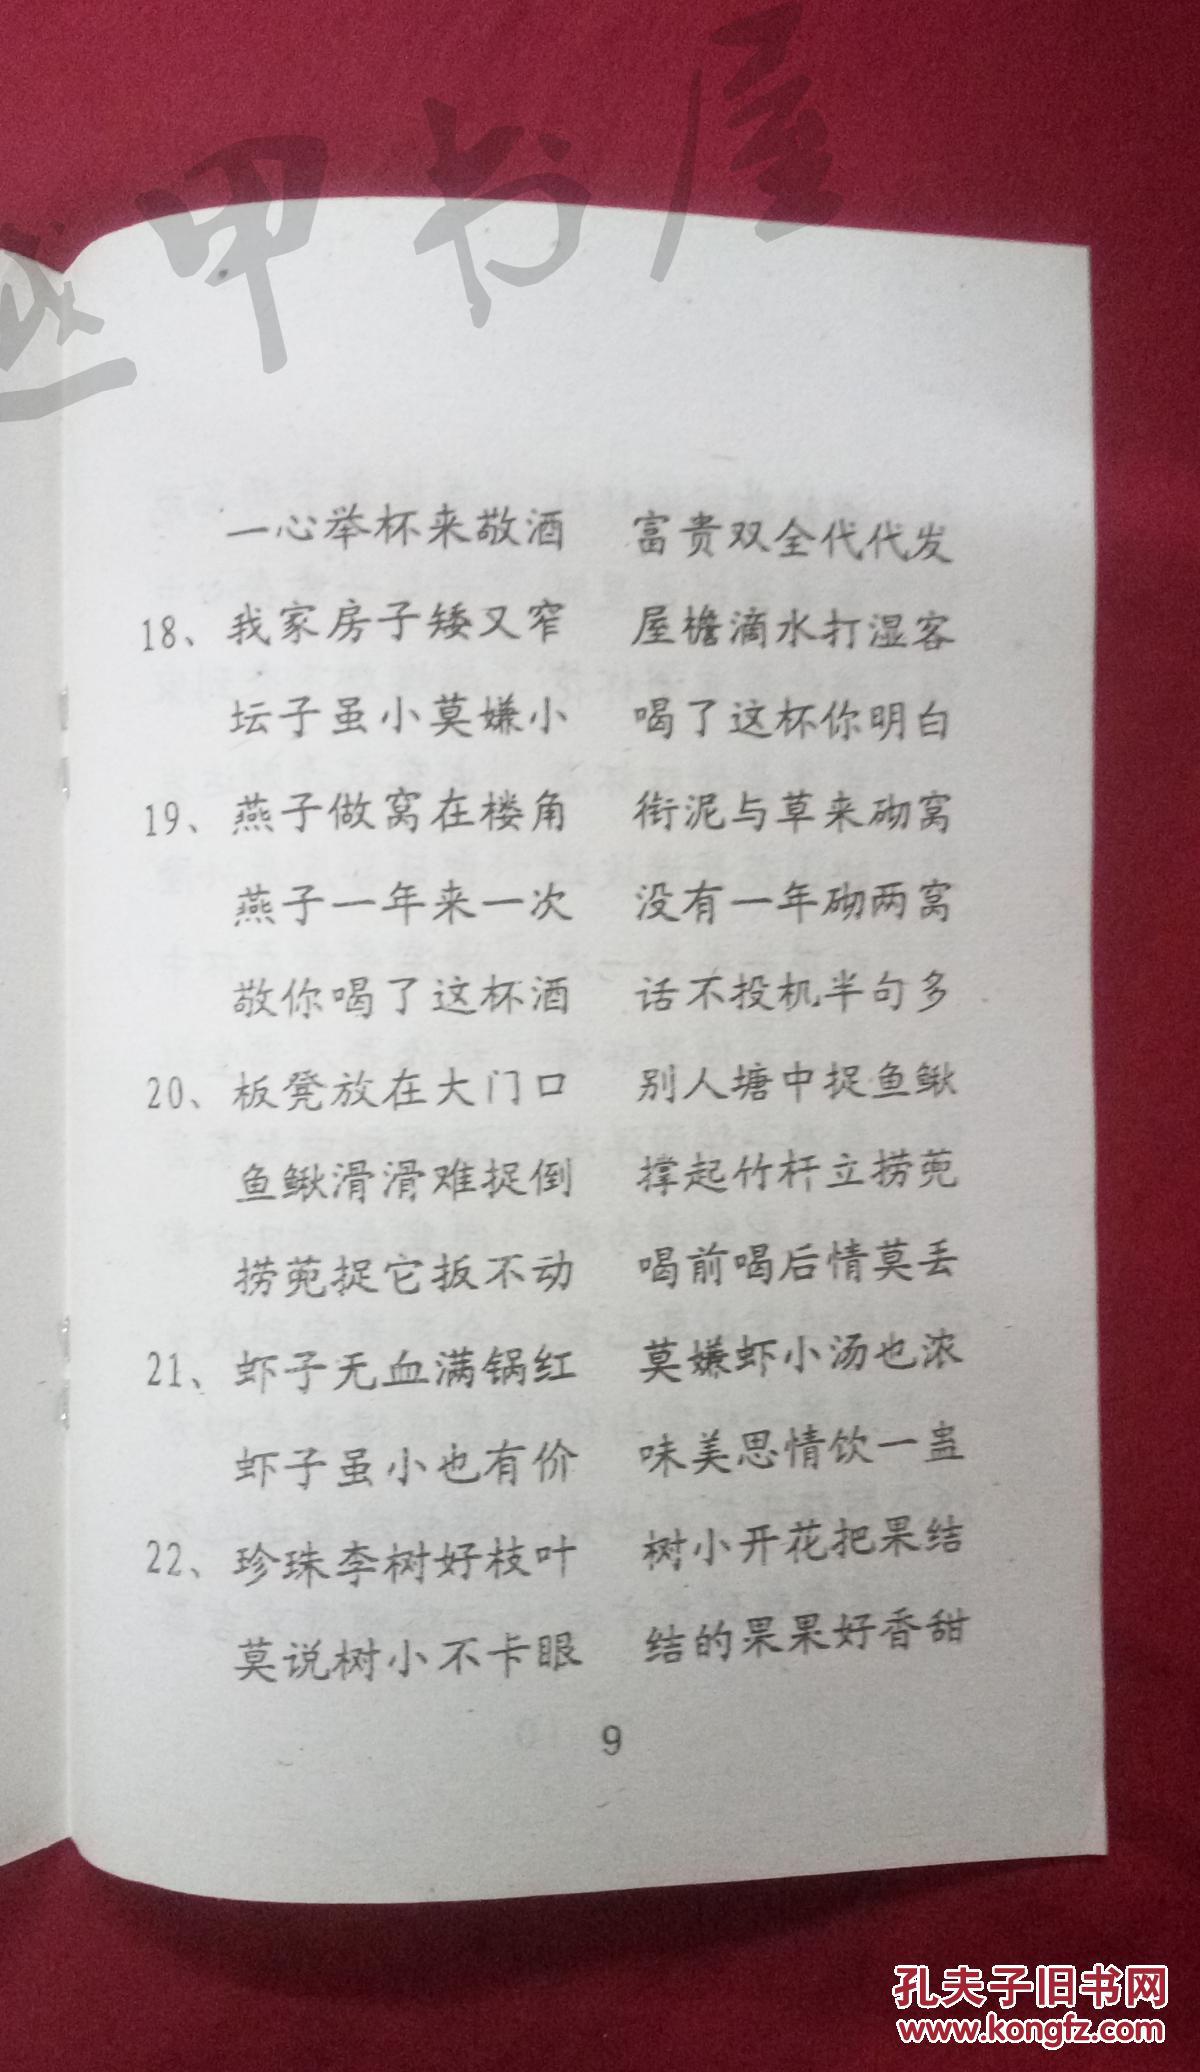 越甲书屋
一心举杯来敬酒 富贵双全代代发
18、我家房子矮又窄 屋檐滴水打湿客
坛子虽小莫嫌小 喝了这杯你明白
19、燕子做窝在楼角 衔泥与草来砌窝
燕子一年来一次 没有一年砌两窝
敬你喝了这杯酒 话不投机半句多
20、板凳放在大门口 别人塘中捉鱼鳅
鱼鳅滑滑难捉倒 撑起竹杆立捞蔸
捞蔸捉它扳不动 喝前喝后情莫丢
21、虾子无血满锅红 莫嫌虾小汤也浓
虾子虽小也有价 味美思情饮一盅
22、珍珠李树好枝叶 树小开花把果结
莫说树小不卡眼 结的果果好香甜
9
孔夫子旧书网
www.kongfz.com